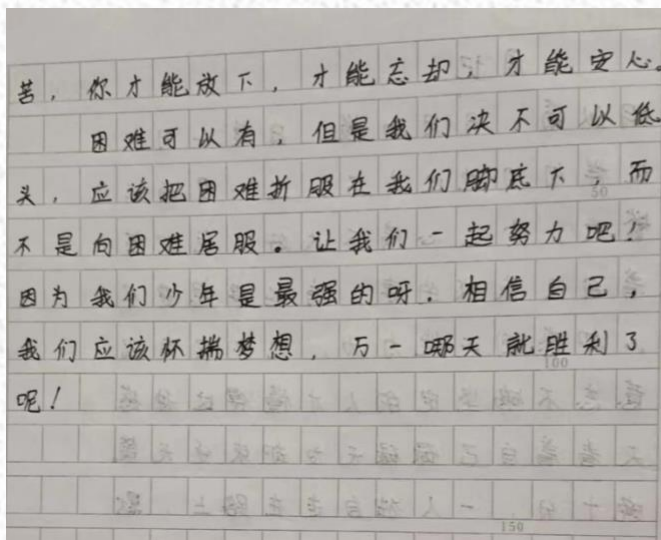 苦，你才能放下，才能忘却，才能安心。
困难可以有，但是我们决不可以低
头，应该把困难折服在我们脚底下，而
不是向困难居服。让我们一起努力吧！
因为我们少年是最强的呀．相信自己，
我们应该怀揣梦想，万一哪天就胜利了
呢！
50
100
150